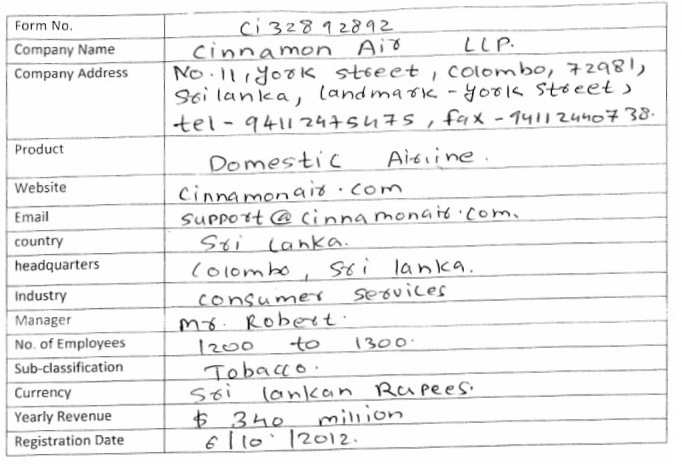 Form No. Ci32892892
Company Name Cinnamon Air LLP.
Company Address No.11, york street, colombo, 72981,
Sri lanka, landmark - york street,
tel - 94112475475, fax - 94112440738.
Product Domestic Airline.
Website Cinnamonair.com
Email support@Cinnamonair.com.
country Sri Lanka.
headquarters Colombo, Sri lanka.
Industry consumer services
Manager Mr. Robert.
No. of Employees 1200 to 1300.
Sub-classification Tobacco.
Currency Sri lankan Rupees.
Yearly Revenue $ 340 million
Registration Date 6/10/2012.